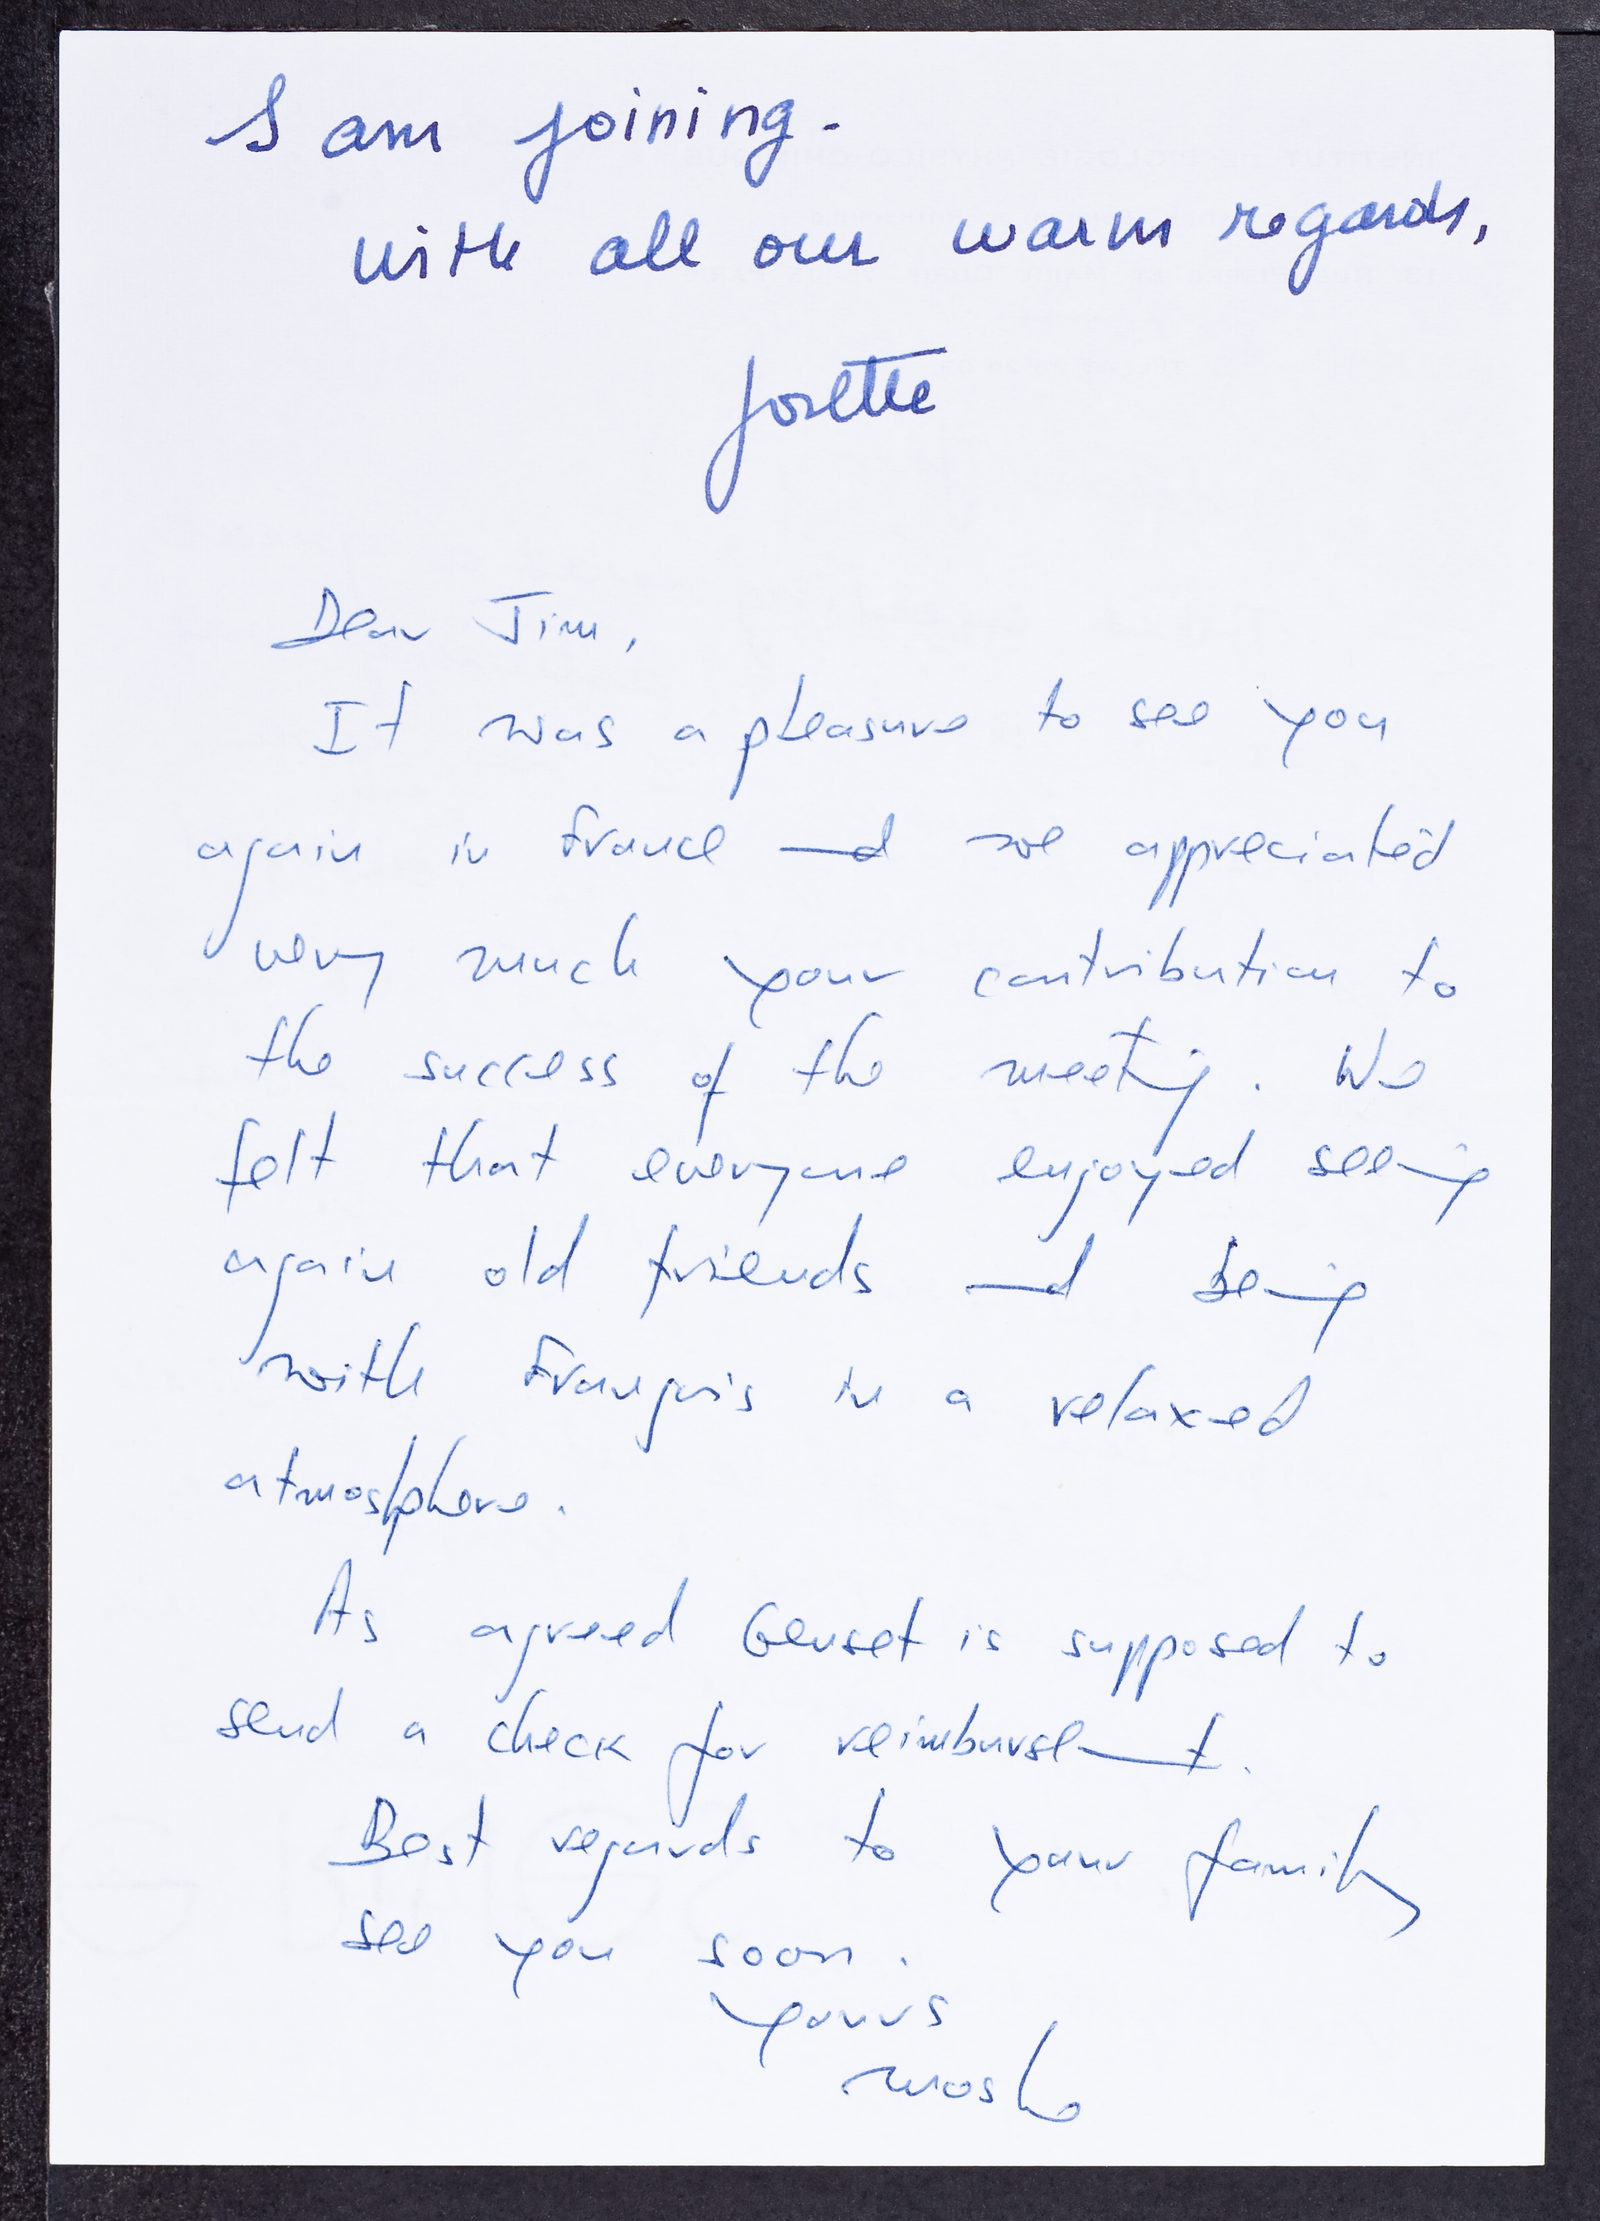 I am joining.
with all our warm regards,
Josette
Dear Jim,
It was a pleasure to see you
again in France and we appreciated
very much your contribution to
the success of the meeting. We
felt that everyone enjoyed seeing
again old friends and being
with François in a relaxed
atmosphere.
As agreed Genset is supposed to
send a check for reimbursement.
Best regards to your family
see you soon.
Yours
Moshe